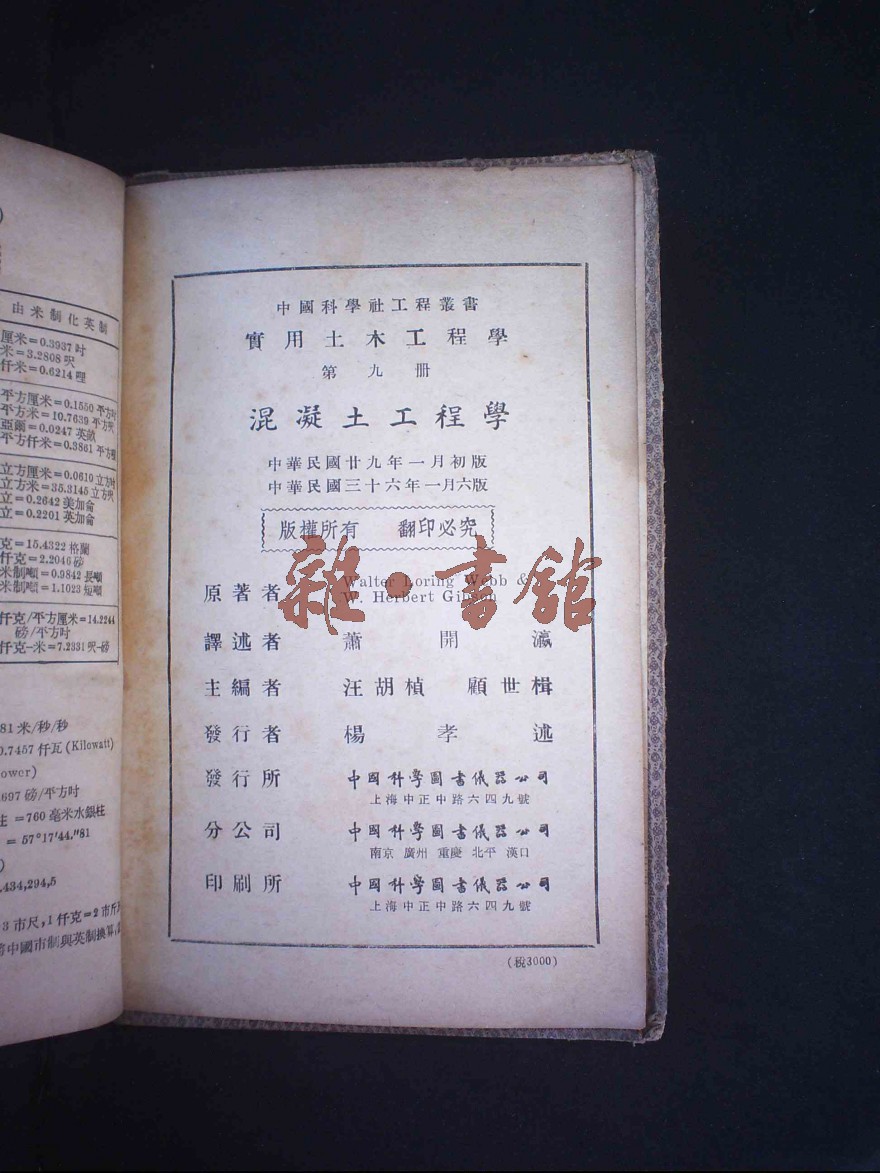 由米制化英制
厘米=0.3937吋
米=3.2808呎
仟米=0.6214哩
平方厘米=0.1550平方吋
平方米=10.7639平方呎
亞爾=0.0247英畝
平方仟米=0.3861平方哩
立方厘米=0.0610立方吋
立方米=35.3145立方呎
立=0.2642美加侖
立=0.2201英加侖
克=15.4322格蘭
仟克=2.2046磅
米制噸=0.9842長噸
米制噸=1.1023短噸
仟克/平方厘米=14.2244
磅/平方吋
仟克-米=7.2331呎-磅
81米/秒/秒
0.7457仟瓦(Kilowatt)
ower)
697磅/平方吋
柱=760毫米水銀柱
=57°17′44.″81
.434,294,5
3市尺,1仟克=2市斤
將中國市制與英制換算
中國科學社工程叢書
實用土木工程學
第九册
混凝土工程學
中華民國廿九年一月初版
中華民國三十六年一月六版
版權所有 翻印必究
原著者 Walter Loring Webb &
W. Herbert Gibson
譯述者 蕭開瀛
主編者 汪胡楨 顧世楫
發行者 楊孝述
發行所 中國科學圖書儀器公司
上海中正中路六四九號
分公司 中國科學圖書儀器公司
南京 廣州 重慶 北平 漢口
印刷所 中國科學圖書儀器公司
上海中正中路六四九號
(稅3000)
雜·書館